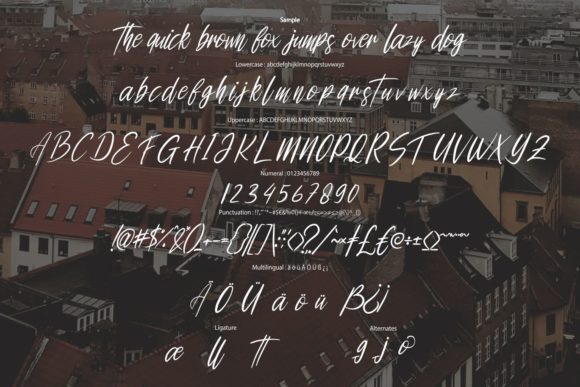 Sample
The quick brown fox jumps over lazy dog
Lowercase : abcdefghijklmnopqrstuvwxyz
abcdefghijklmnopqrstuvwxyz
Uppercase : ABCDEFGHIJKLMNOPQRSTUVWXYZ
ABCDEFGHIJKLMNOPQRSTUVWXYZ
Numeral : 0123456789
1234567890
Punctuation :
Multilingual : ä ö ü Ä Ö Ü ß ¿ ¡
Ä Ö Ü ä ö ü ß ¿ ¡
Ligature Alternates
æ ll tt g j o